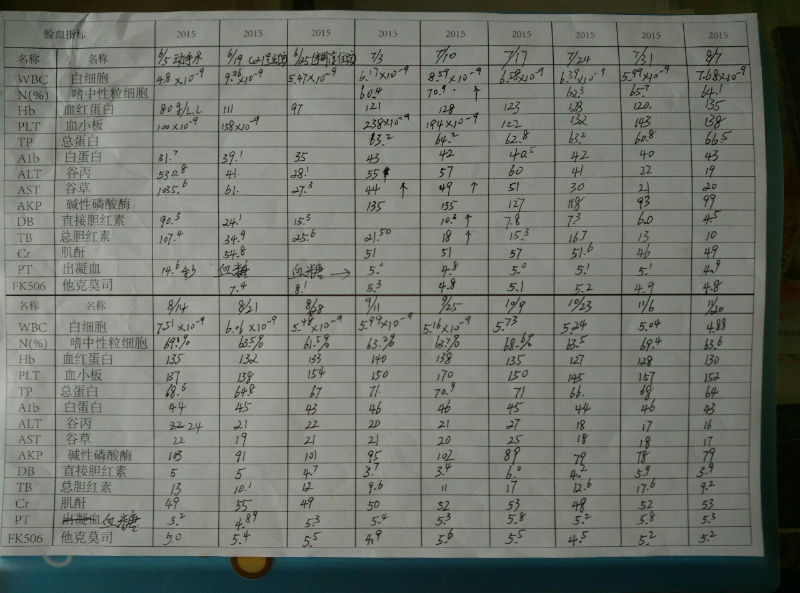 验血指标 2015 2015 2015 2015 2015 2015 2015 2015 2015
名称 名称 6/5 6/19 6/25 7/3 7/10 7/17 7/24 7/31 8/7
WBC 白细胞 4.8×10^-9 9.26×10^-9 5.47×10^-9 6.17×10^-9 8.59×10^-9 6.58×10^-9 6.39×10^-9 5.99×10^-9 7.68×10^-9
N(%) 嗜中性粒细胞 60.4 70.9 ↑ 62.3 65.7 64.1
Hb 血红蛋白 80g/L 111 97 121 128 123 120 135
PLT 血小板 100×10^-9 158×10^-9 238×10^-9 194×10^-9 122 132 143 138
TP 总蛋白 63.2 64.2 62.8 63.2 60.8 66.5
A1b 白蛋白 31.7 39.1 35 43 42 40.5 42 40 43
ALT 谷丙 530.8 41. 28.1 55 57 60 41 22 19
AST 谷草 1035.6 61. 27.3 44 ↑ 49 ↑ 51 30 21 20
AKP 碱性磷酸酶 135 135 127 118 93 99
DB 直接胆红素 90.5 24.1 15.5 10.2 ↑ 7.8 7.3 6.0 4.5
TB 总胆红素 107.4 34.9 25.6 21.50 18 ↑ 15.3 16.7 13 10
Cr 肌酐 54.8 51 51 57 51.6 46 49
PT 出凝血 14.6秒 血糖 血糖 → 5.0 4.8 5.0 5.1 5.1 4.9
FK506 他克莫司 7.4 8.1 5.3 4.8 5.1 5.2 4.9 4.8
名称 名称 8/14 8/21 8/28 9/11 9/25 10/9 10/23 11/6 11/20
WBC 白细胞 7.51×10^-9 6.06×10^-9 5.48×10^-9 5.99×10^-9 5.16×10^-9 5.73 5.24 5.04 4.88
N(%) 嗜中性粒细胞 69.1% 63.5% 61.5% 63.2% 63.7% 68.6% 63.5 69.4 63.6
Hb 血红蛋白 135 132 133 140 138 135 127 128 130
PLT 血小板 137 138 154 150 170 150 145 157 152
TP 总蛋白 68.6 64.8 67 71. 70.9 71 66. 68 64
A1b 白蛋白 44 45 43 46 46 45 44 46 43
ALT 谷丙 24 21 22 20 21 27 18 17 16
AST 谷草 22 19 21 21 20 25 18 18 17
AKP 碱性磷酸酶 103 91 101 95 102 89 79 78 79
DB 直接胆红素 5 5 4.7 3.7 3.4 6.0 4.2 5.9 3.9
TB 总胆红素 13 10.1 12 9.6 11 17 12.6 17.6 9.2
Cr 肌酐 49 55 49 50 52 53 48 52 53
PT 出凝血 血糖 5.2 4.89 5.3 5.4 5.3 5.8 5.2 5.8 5.3
FK506 他克莫司 5.0 5.4 5.5 4.9 5.6 5.5 4.5 5.2 5.2